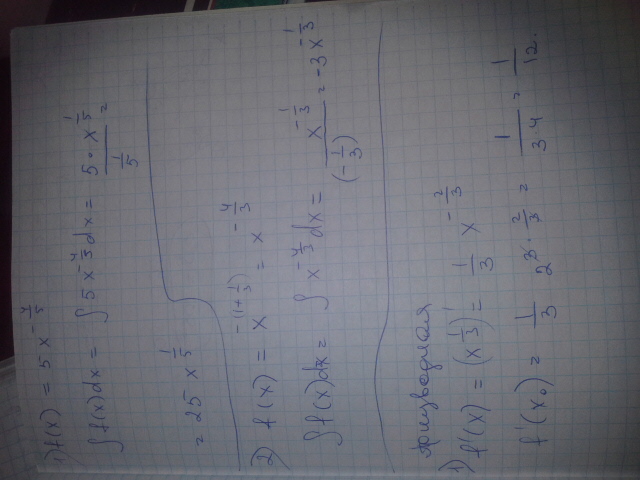 1) f(x) = 5x^{-4/5}
∫f(x)dx = ∫5x^{-4/5}dx = \frac{5·x^{1/5}}{1/5} =
= 25x^{1/5}
2) f(x) = x^{-(1+1/3)} = x^{-4/3}
∫f(x)dx = ∫x^{-4/3}dx = \frac{x^{-1/3}}{(-1/3)} = -3x^{-1/3}
Производная
1) f'(x) = (x^{1/3})' = \frac{1}{3} x^{-2/3}
f'(x₀) = \frac{1}{3} 2^{3·2/3} = \frac{1}{3·4} = \frac{1}{12}.